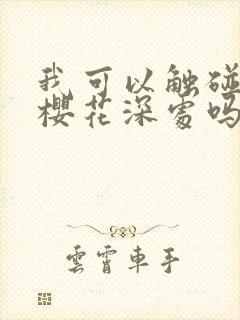 我可以触碰
樱花深处吗
雲霄車手